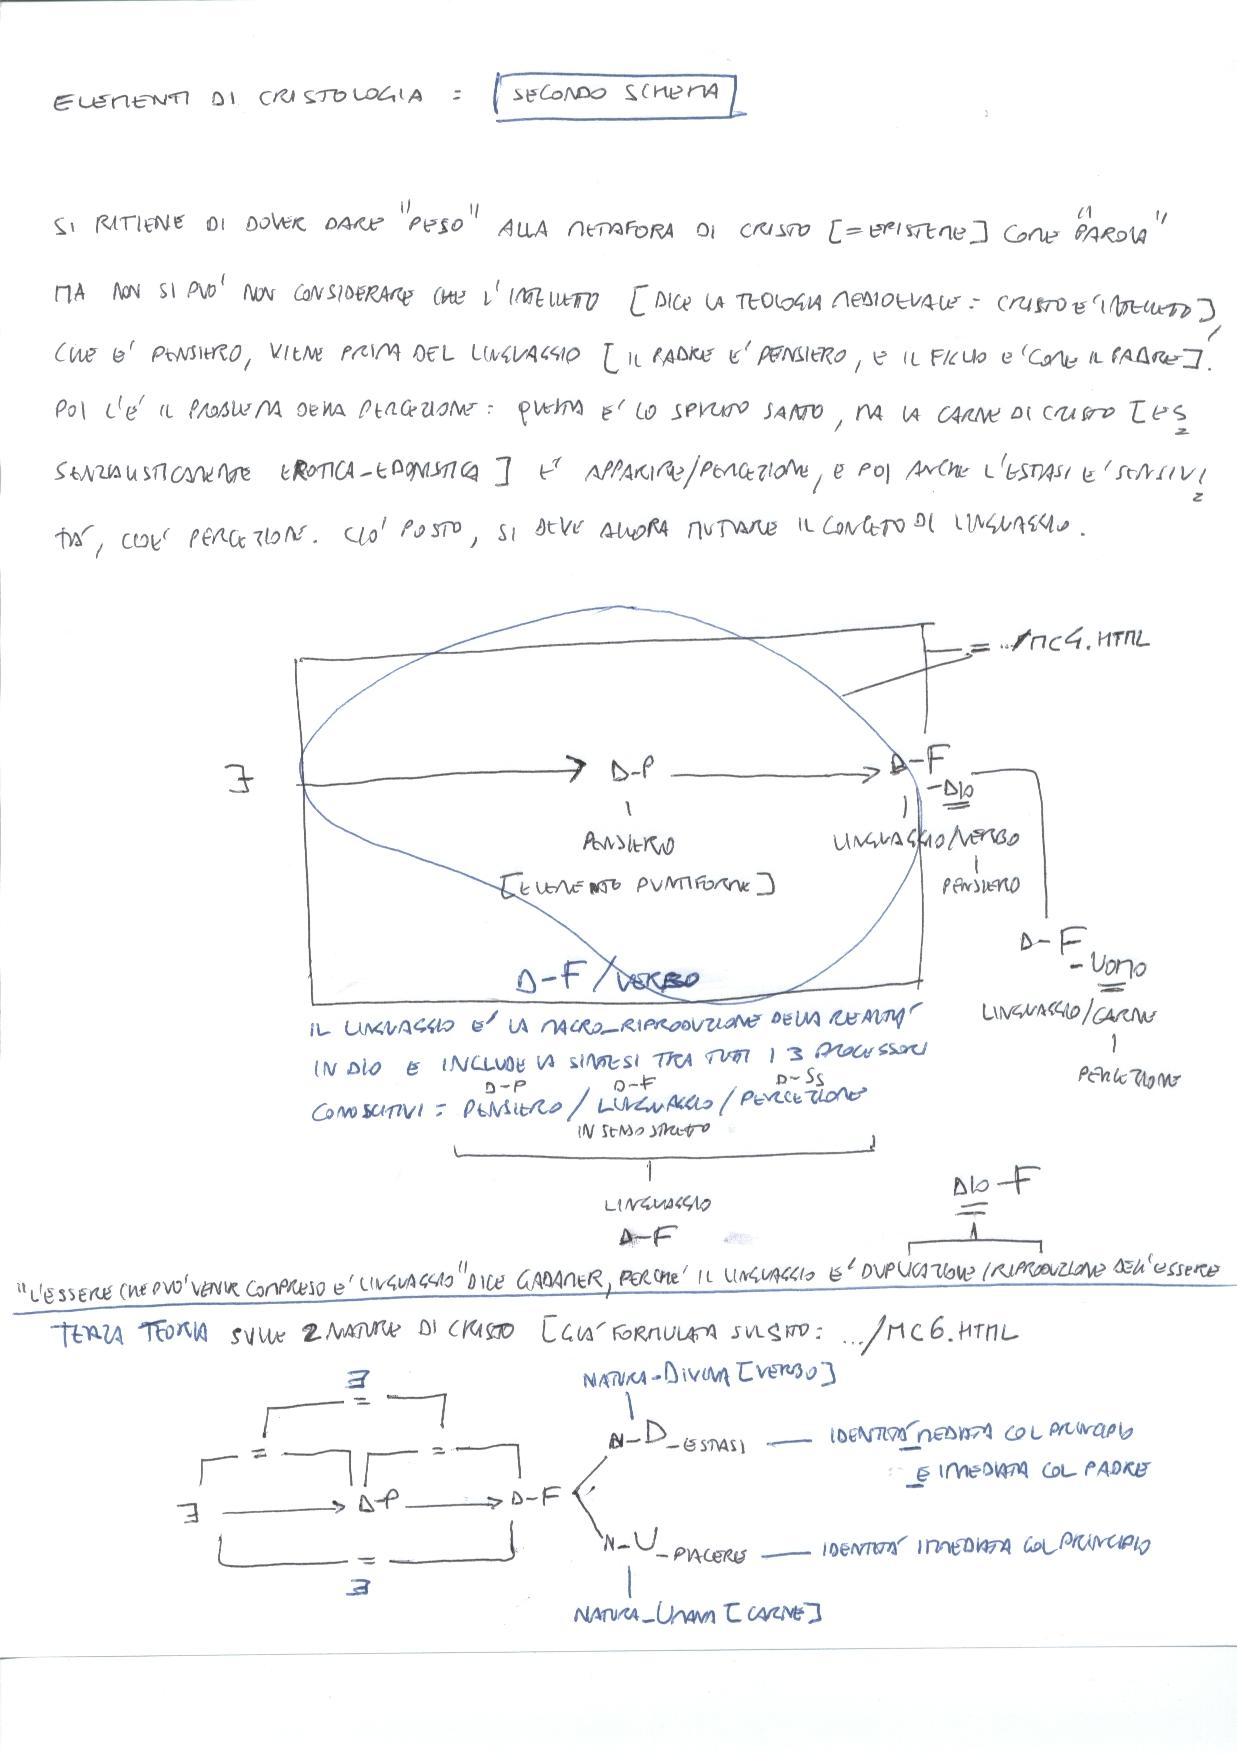 ELEMENTI DI CRISTOLOGIA = SECONDO SCHEMA
SI RITIENE DI DOVER DARE "PESO" ALLA METAFORA DI CRISTO [=EPISTEME] COME "PAROLA"
MA NON SI PUO' NON CONSIDERARE CHE L'INTELLETTO [DICE LA TEOLOGIA MEDIOEVALE = CRISTO E' INTELLETTO],
CHE E' PENSIERO, VIENE PRIMA DEL LINGUAGGIO [IL PADRE E' PENSIERO, E IL FIGLIO E' COME IL PADRE].
POI C'E' IL PROBLEMA DELLA PERCEZIONE: QUESTA E' LO SPIRITO SANTO, MA LA CARNE DI CRISTO [ES=
SENZIALISTICAMENTE EROTICA-EDONISTICA] E' APPARIRE/PERCEZIONE, E POI ANCHE L'ESTASI E' SENSIVI=
TA', CIOE' PERCEZIONE. CIO' POSTO, SI DEVE ALLORA MUTARE IL CONCETTO DI LINGUAGGIO.
= .../MC4.HTML
∃ D-P D-F-DIO
PENSIERO LINGUAGGIO/VERBO
[ELEMENTO PUNTIFORME] PENSIERO
D-F-UOMO
D-F/VERBO
LINGUAGGIO/CARNE
IL LINGUAGGIO E' LA MACRO-RIPRODUZIONE DELLA REALTA'
IN DIO E INCLUDE LA SINTESI TRA TUTTI I 3 PROCESSORI
PERCEZIONE
D-P D-F D-SS
CONOSCITIVI = PENSIERO / LINGUAGGIO / PERCEZIONE
IN SENSO STRETTO
LINGUAGGIO
D-F
DIO-F
"L'ESSERE CHE PUO' VENIR COMPRESO E' LINGUAGGIO" DICE GADAMER, PERCHE' IL LINGUAGGIO E' DUPLICAZIONE/RIPRODUZIONE DELL'ESSERE
TERZA TEORIA SULLE 2 NATURE DI CRISTO [GIA' FORMULATA SUL SITO: .../MC6.HTML
∃ NATURA-DIVINA [VERBO]
=
= = N-D-ESTASI IDENTITA' MEDIATA COL PRINCIPIO
E IMMEDIATA COL PADRE
∃ D-P D-F
N-U-PIACERE IDENTITA' IMMEDIATA COL PRINCIPIO
=
∃
NATURA-UMANA [CARNE]